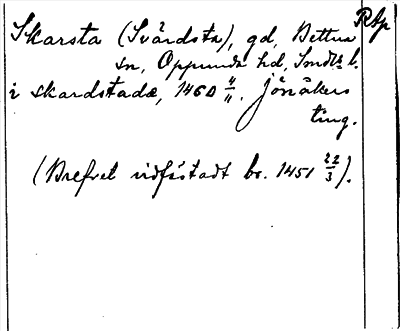 Skarsta (Svärdsta), gd, Bettna RAp
sn, Oppunda hd, Smdl. l.
i skardstadæ, 1460 4/11. Jönåkers
ting.
(Brefvet vidfästadt br. 1451 22/3).